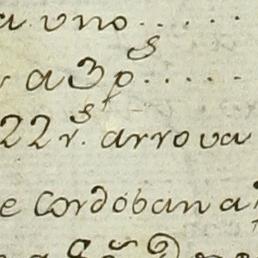 a uno......
a 3 p^s.....
22 r^s. arrova
e Cordoban a